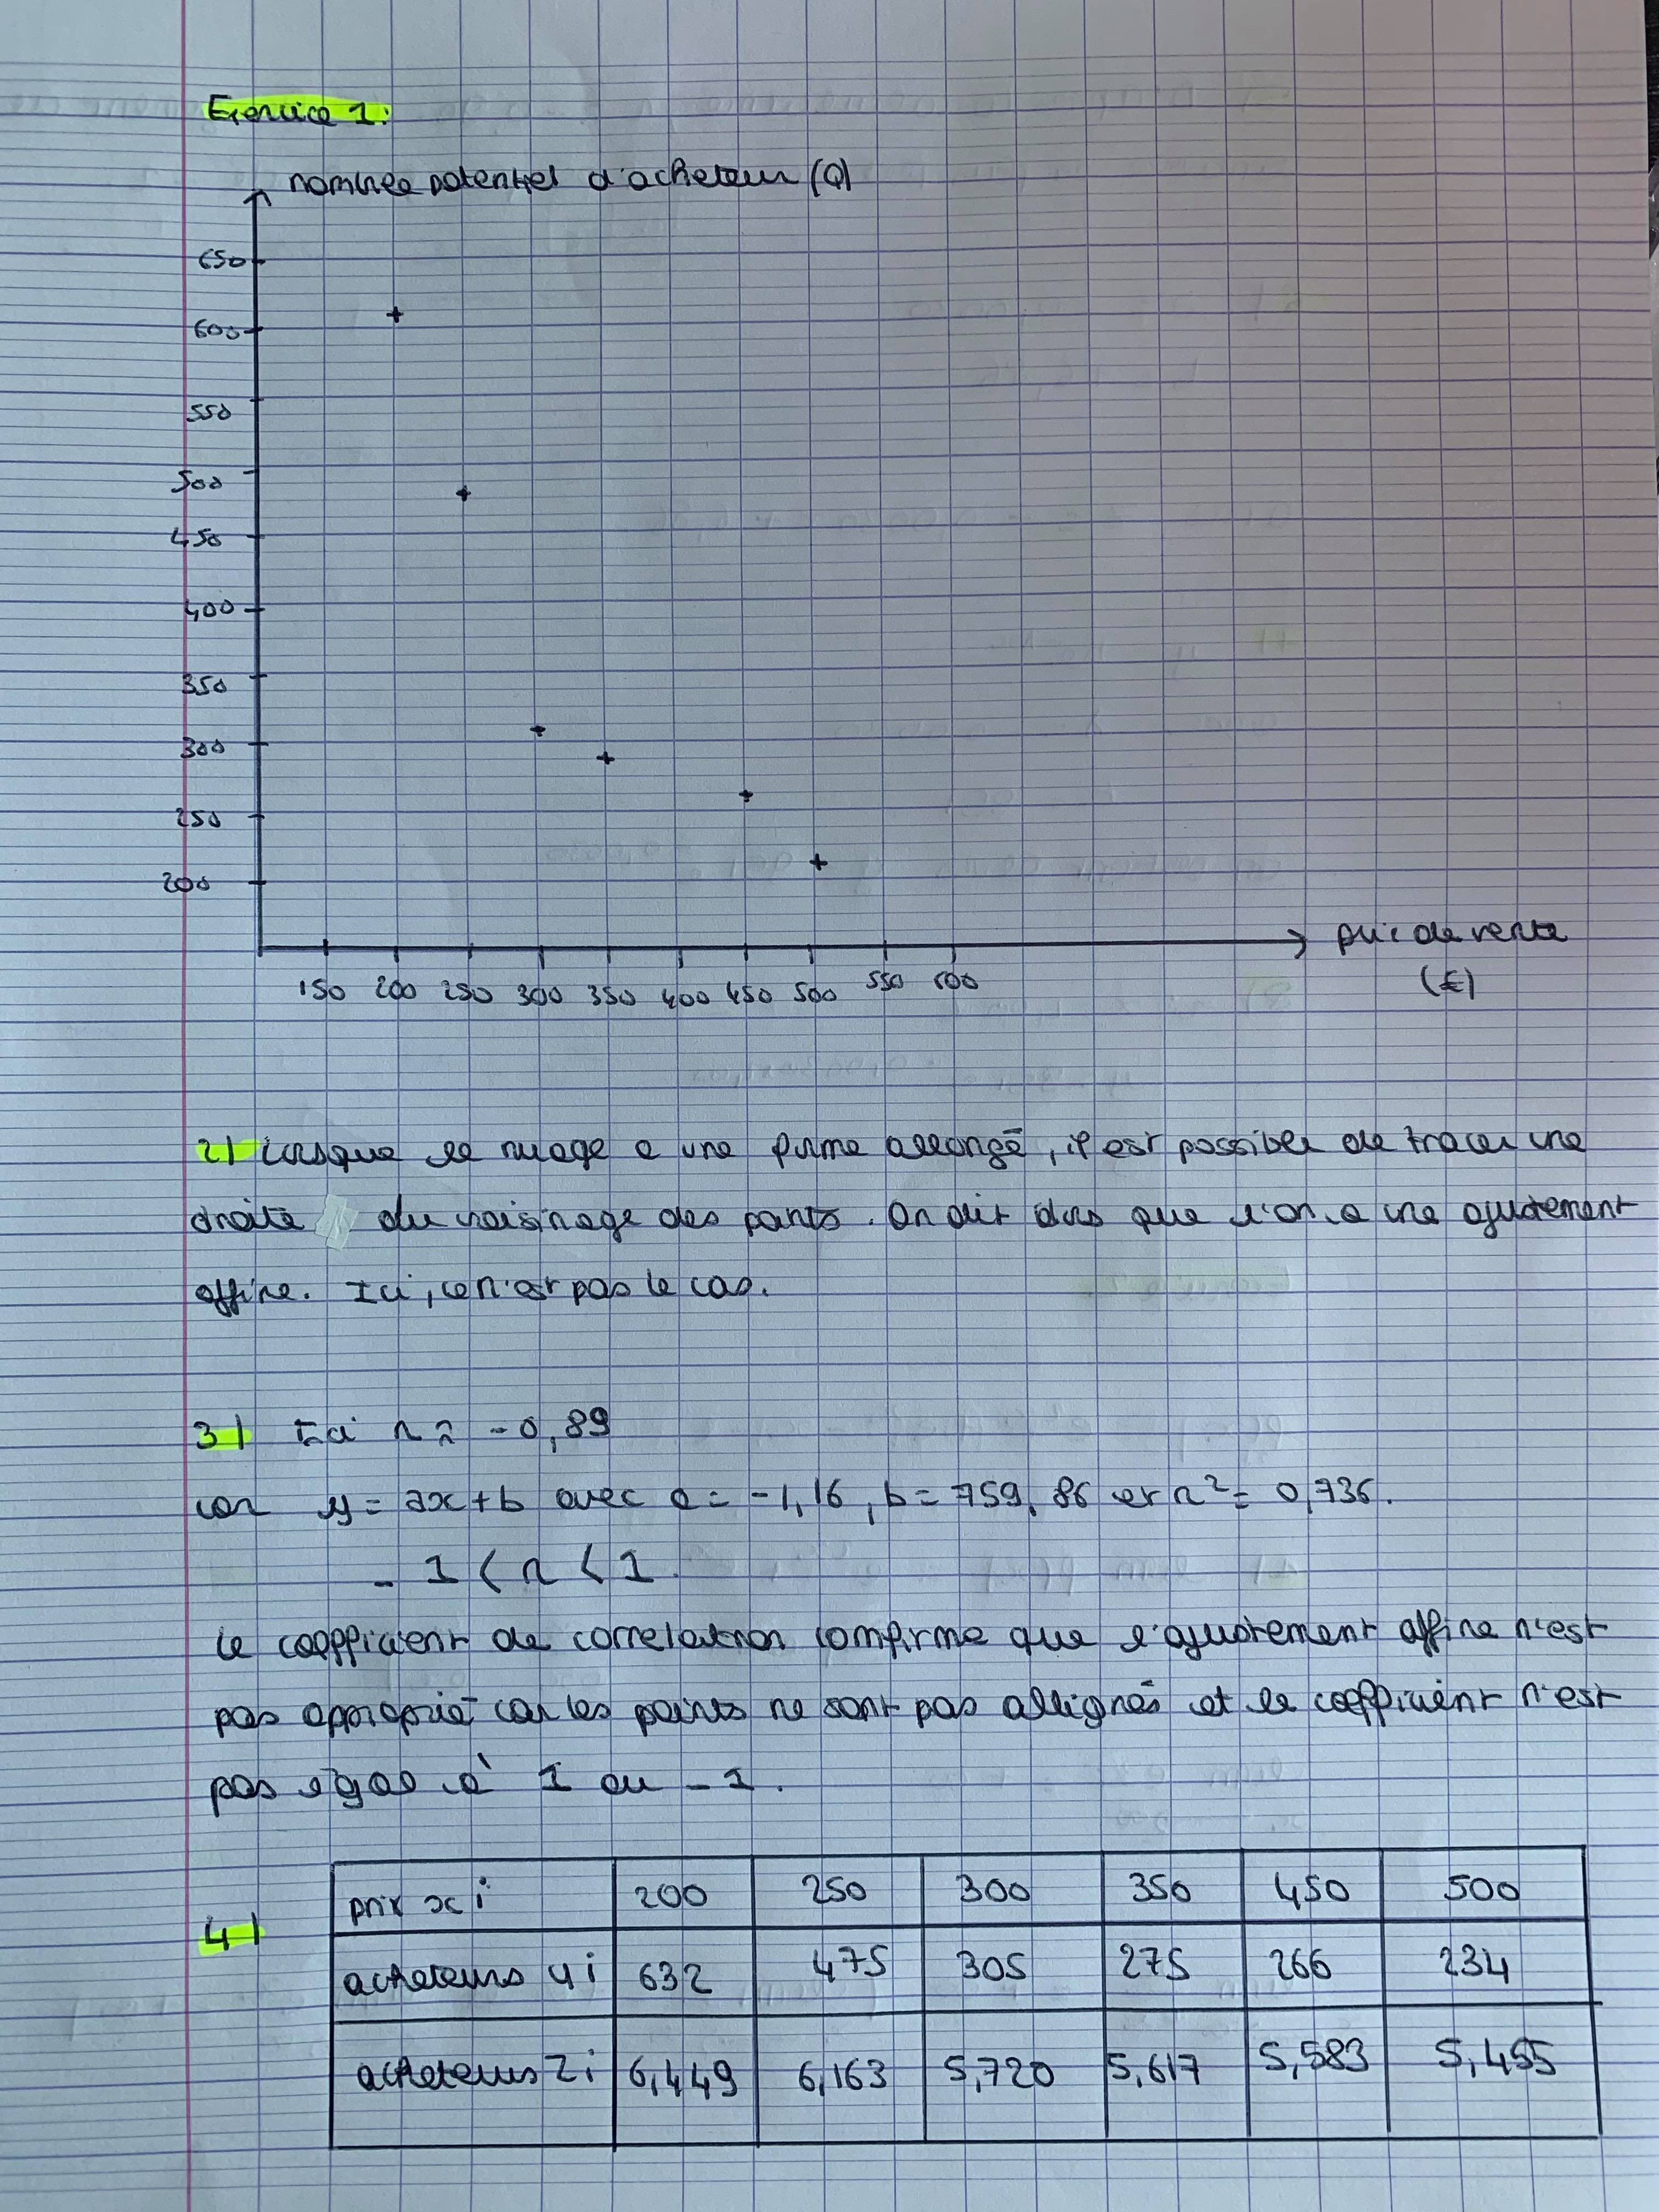 Exercice 1:
nombre potentiel d'acheteur (Q)
650
600
550
500
450
400
350
300
250
200
prix de vente
(€)
150 200 250 300 350 400 450 500 550 600
2) Lorsque le nuage a une forme allongé, il est possible de tracer une
droite au voisinage des points. On dit alors que l'on a une ajustement
affine. Ici, ce n'est pas le cas.
3) Ici r ≈ -0,89
car y = ax+b avec a = -1,16, b = 759,86 et r² = 0,736.
-1 < r < 1.
Le coefficient de correlation comfirme que l'ajustement affine n'est
pas approprié car les points ne sont pas allignés et le coefficient n'est
pas égal à 1 ou -1.
4)
prix xi 200 250 300 350 450 500
acheteurs yi 632 475 305 275 266 234
acheteurs zi 6,449 6,163 5,720 5,617 5,583 5,455